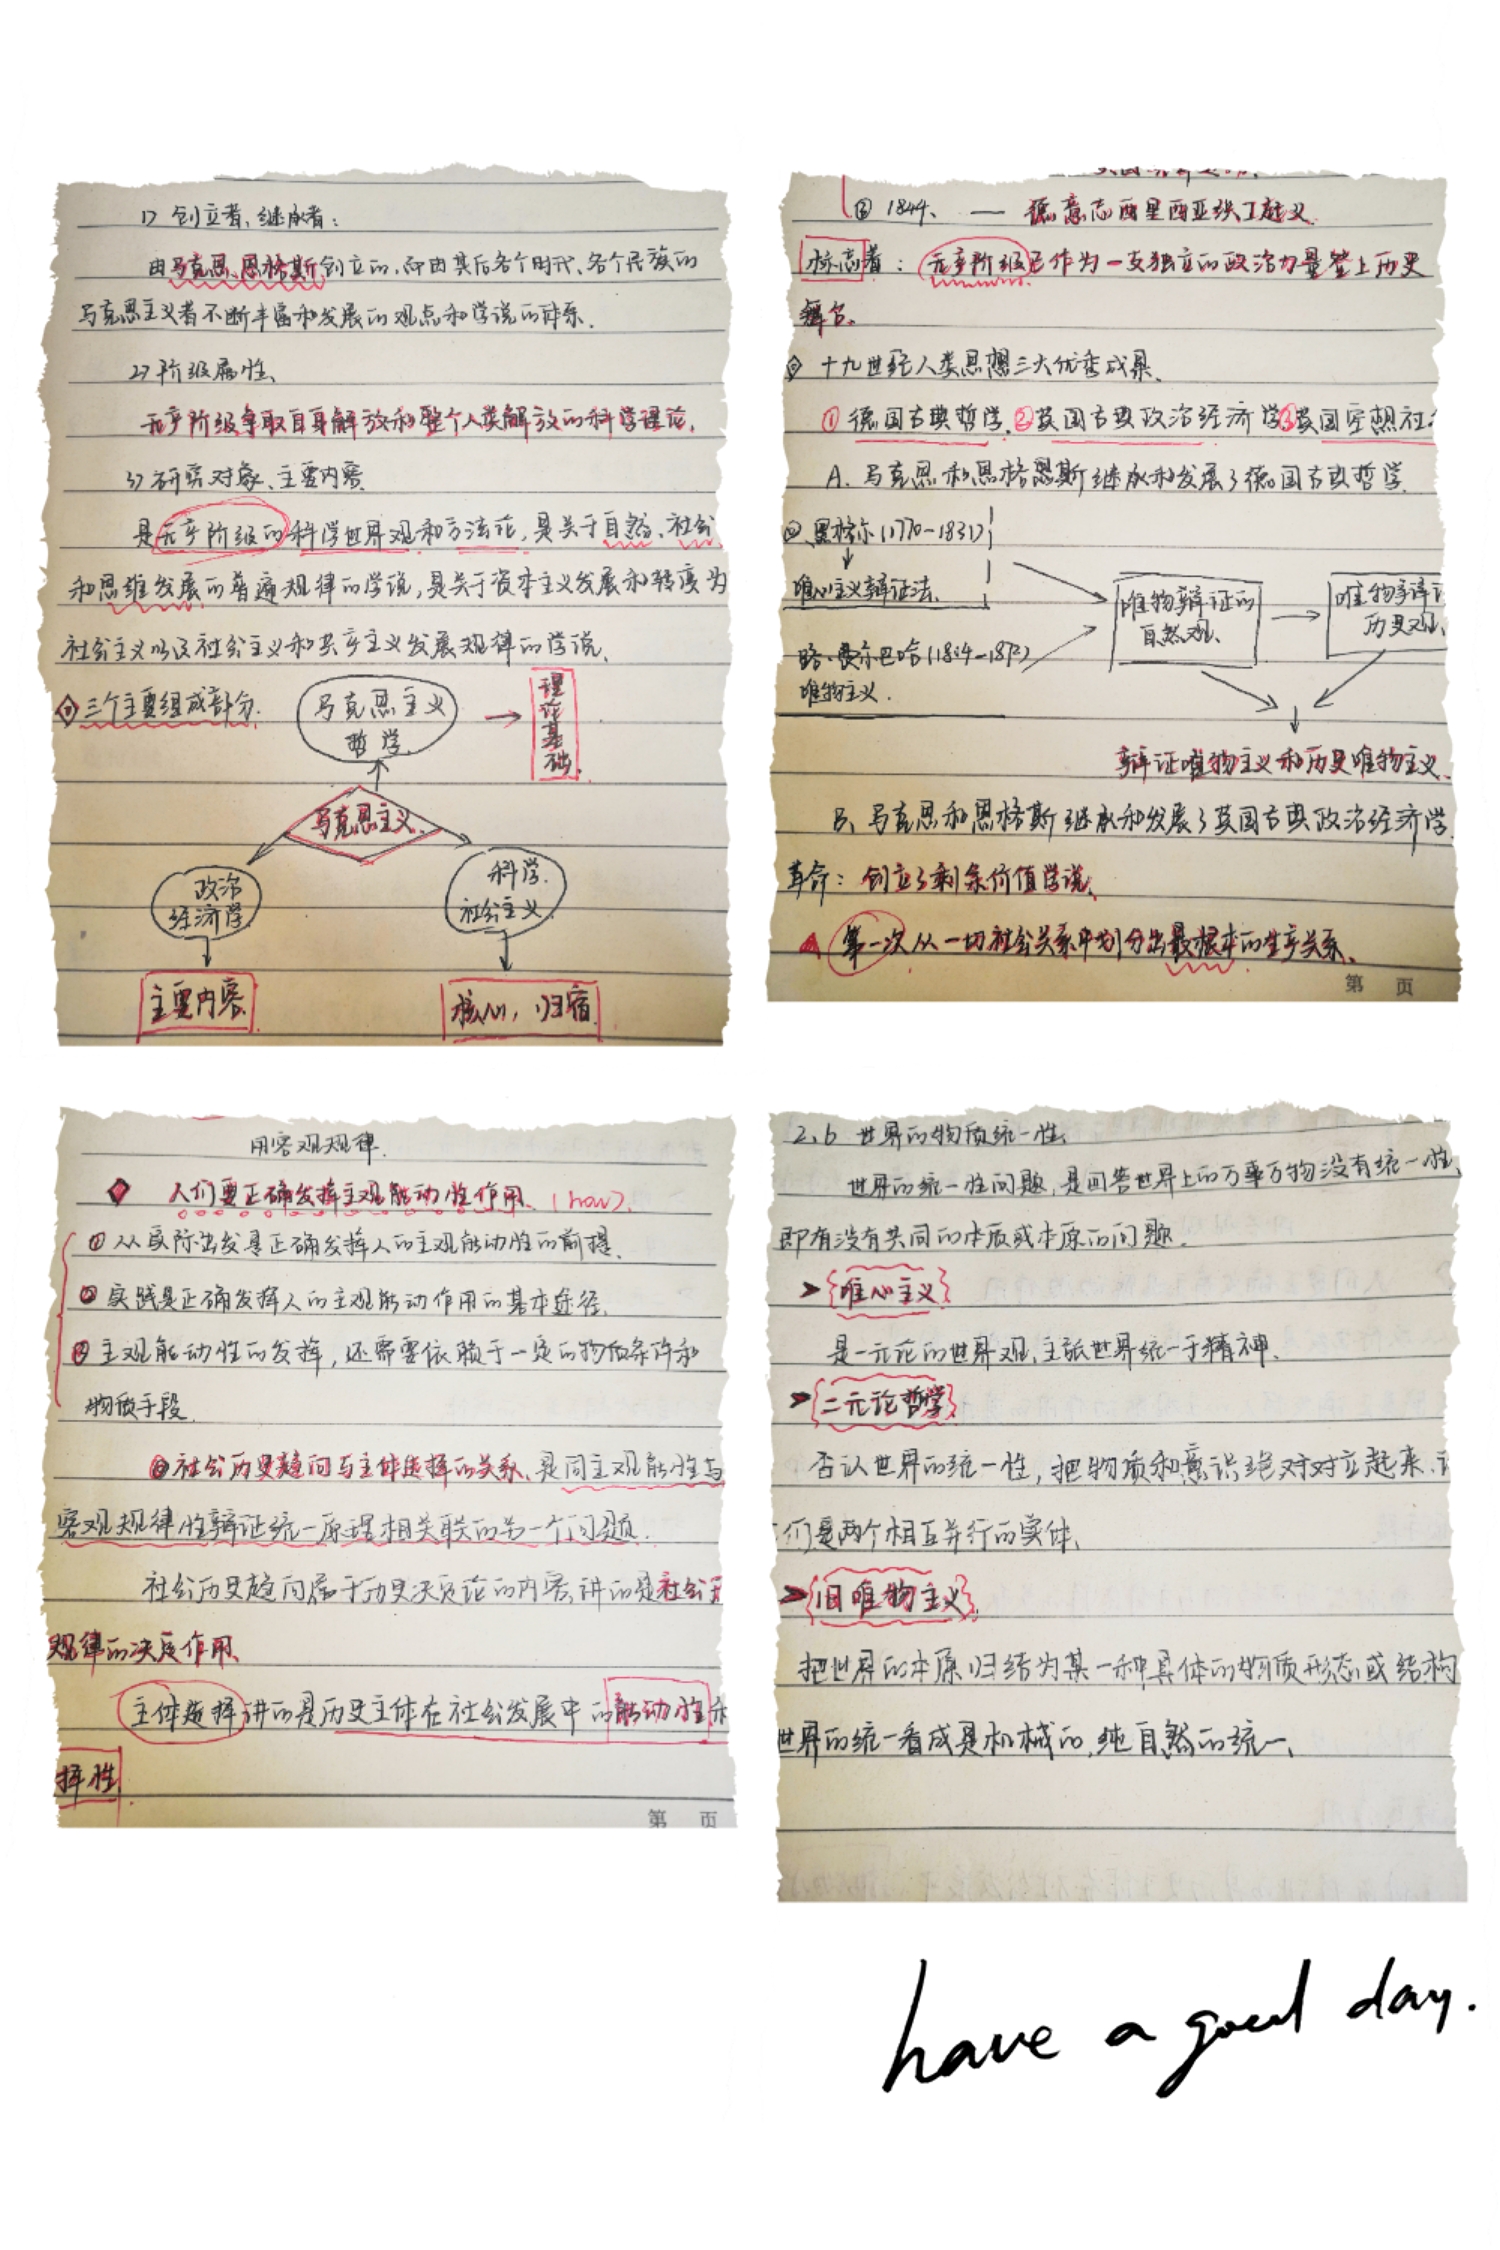 1) 创立者、继承者：
由马克思、恩格斯创立的，而由其后各个时代、各个民族的
马克思主义者不断丰富和发展的观点和学说的体系．
2) 阶级属性、
无产阶级争取自身解放和整个人类解放的科学理论，
3) 研究对象、主要内容
是无产阶级的科学世界观和方法论，是关于自然、社会
和思维发展的普遍规律的学说，是关于资本主义发展和转变为
社会主义以及社会主义和共产主义发展规律的学说、
三个主要组成部分．
马克思主义
哲学．
理论基础．
马克思主义．
政治
经济学．
科学．
社会主义．
主要内容
核心，归宿
③ 1844、 — 德意志西里西亚织工起义
标志着：无产阶级已作为一支独立的政治力量登上历史
舞台．
十九世纪人类思想三大优秀成果、
①德国古典哲学．②英国古典政治经济学③英国空想社
A．马克思和恩格恩斯继承和发展了德国古典哲学．
黑格尔(1770-1831)
唯心主义辩证法、
路·费尔巴哈(1804-1872)
唯物主义．
唯物辩证的
自然观、
唯物辩证
历史观、
辩证唯物主义和历史唯物主义．
B、马克思和恩格斯继承和发展了英国古典政治经济学．
革命：创立了剩余价值学说、
第一次从一切社会关系中划分出最根本的生产关系、
第 页
用客观规律．
人们要正确发挥主观能动性作用、(how)．
① 从实际出发是正确发挥人的主观能动性的前提．
② 实践是正确发挥人的主观能动作用的基本途径．
③ 主观能动性的发挥，还需要依赖于一定的物质条件和
物质手段．
社会历史趋向与主体选择的关系、是同主观能动性与
客观规律性辩证统一原理相关联的另一个问题．
社会历史趋向属于历史决定论的内容，讲的是社会历
规律的决定作用、
主体选择讲的是历史主体在社会发展中的能动性和
择性
第 页
2.6 世界的物质统一性、
世界的统一性问题，是回答世界上的万事万物没有统一性、
即有没有共同的本质或本原的问题．
唯心主义
是一元论的世界观、主张世界统一于精神．
二元论哲学
否认世界的统一性，把物质和意识绝对对立起来、
们是两个相互并行的实体、
旧唯物主义
把世界的本原归结为某一种具体的物质形态或结构
世界的统一看成是机械的，纯自然的统一、
have a good day.